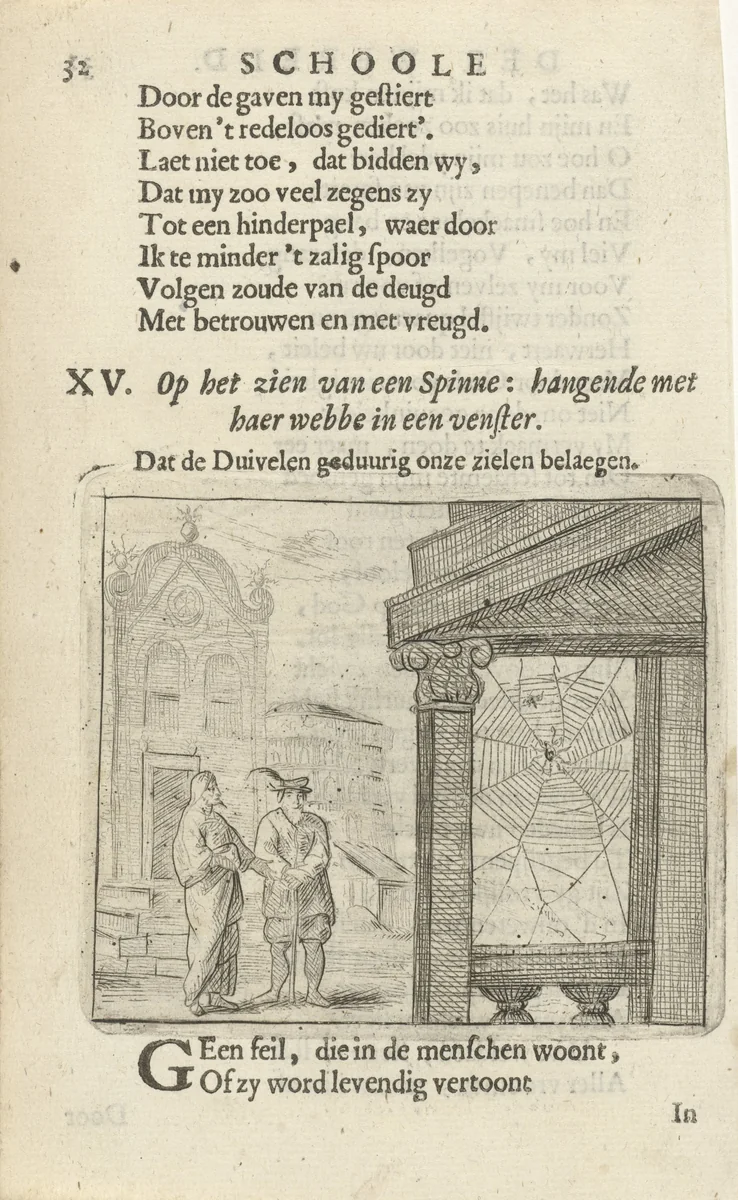 32 SCHOOLE
Door de gaven my geſtiert
Boven't redeloos gediert'.
Laet niet toe, dat bidden wy,
Dat my zoo veel zegens zy
Tot een hinderpael, waer door
Ik te minder 't zalig ſpoor
Volgen zoude van de deugd
Met betrouwen en met vreugd.
XV. Op het zien van een Spinne: hangende met
haer webbe in een venſter.
Dat de Duivelen geduurig onze zielen belaegen.
GEen feil, die in de menſchen woont,
Of zy word levendig vertoont
In